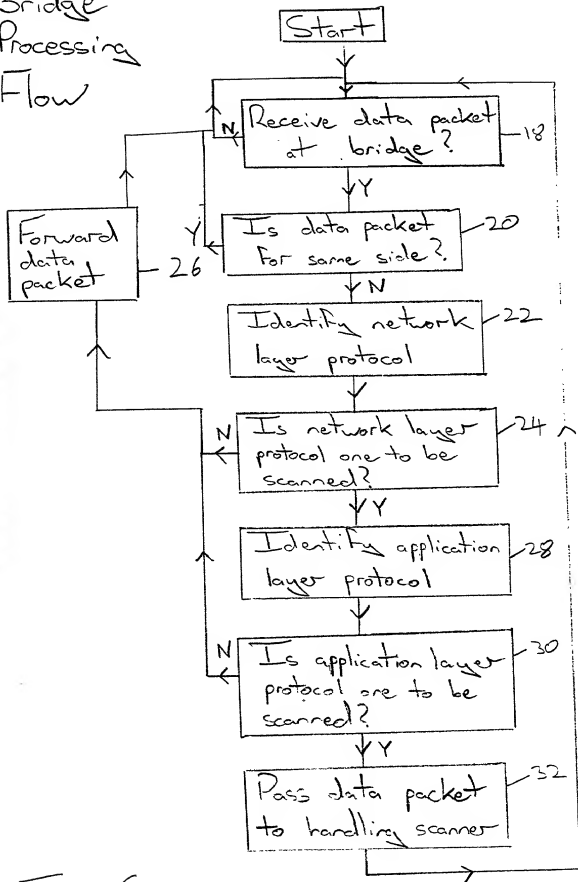 Bridge
Processing
Flow
Start
Receive data packet
at bridge?
18
N
Y
Is data packet
for same side?
20
Y
N
Forward
data
packet
26
Identify network
layer protocol
22
Is network layer
protocol one to be
scanned?
24
N
Y
Identify application
layer protocol
28
Is application layer
protocol one to be
scanned?
30
N
Y
Pass data packet
to handling scanner
32